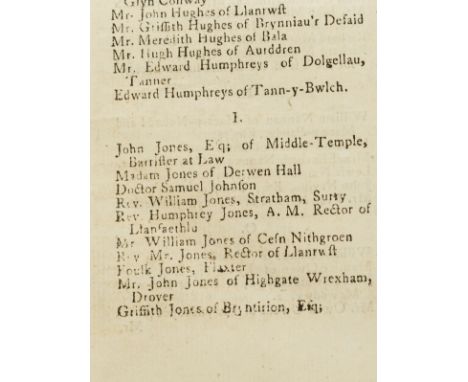 Glyn Conway
Mr. John Hughes of Llanrwſt
Mr. Griffith Hughes of Brynniau'r Defaid
Mr. Meredith Hughes of Bala
Mr. Hugh Hughes of Aurddren
Mr. Edward Humphreys of Dolgellau,
Tanner
Edward Humphreys of Tann-y-Bwlch.
I.
John Jones, Eſq; of Middle-Temple,
Barriſter at Law
Madam Jones of Derwen Hall
Doctor Samuel Johnſon
Rev. William Jones, Stratham, Surry
Rev. Humphrey Jones, A. M. Rector of
Llanfaethlu
Mr William Jones of Cefn Nithgroen
Rev Mr. Jones, Rector of Llanrwſt
Foulk Jones, Flaxter
Mr. John Jones of Highgate Wrexham,
Drover
Griffith Jones of Bryntirion, Eſq;